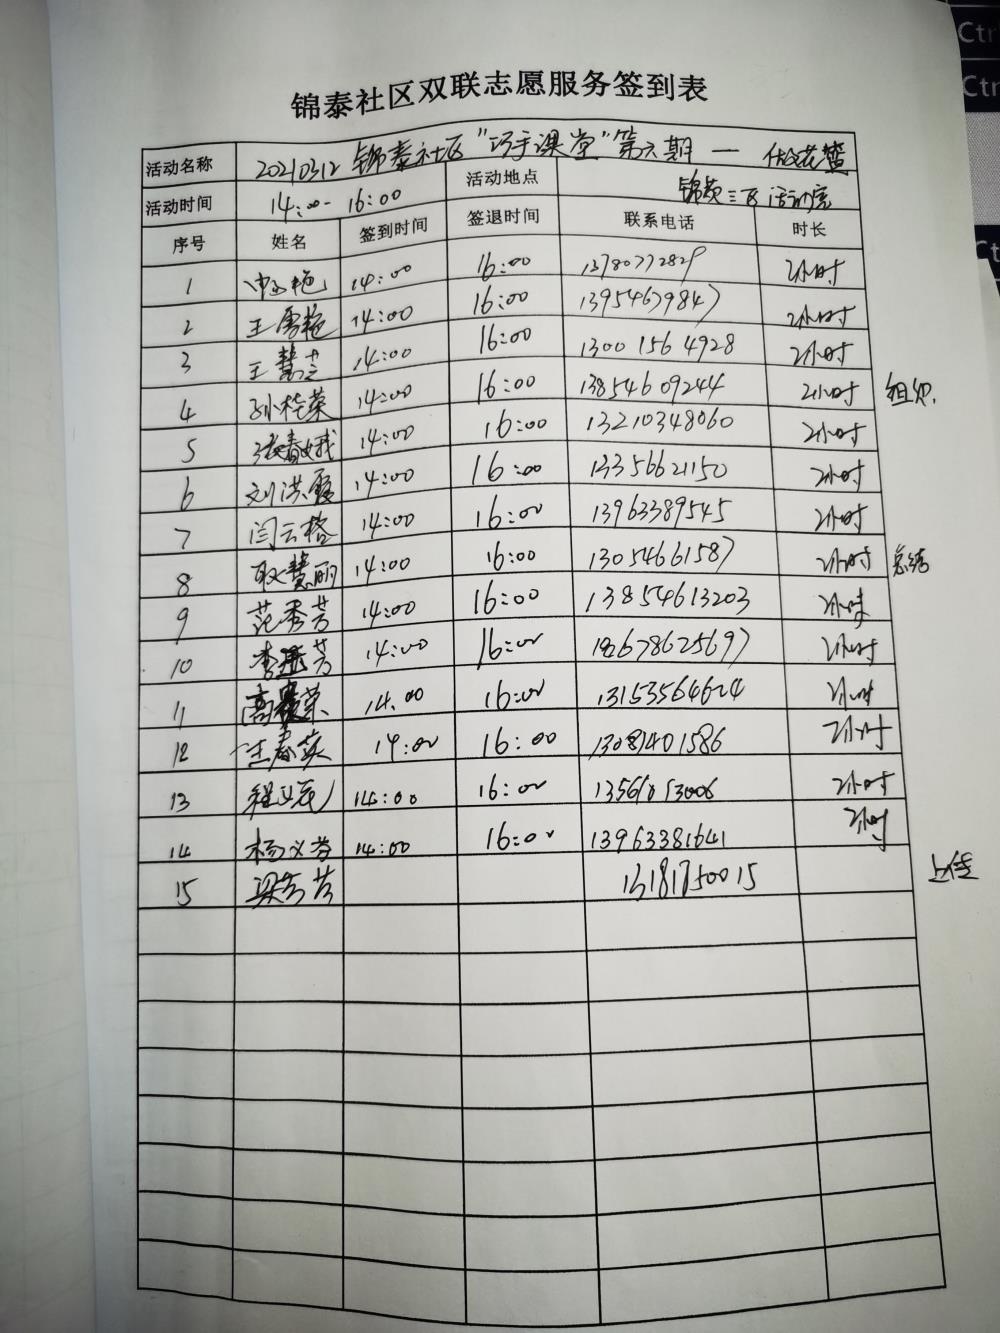 锦泰社区双联志愿服务签到表
活动名称 20210312 锦泰社区"巧手课堂"第六期 — 花篮
活动时间 14:00- 16:00 活动地点 锦苑三区活动室
序号 姓名 签到时间 签退时间 联系电话 时长
1 14:00 16:00 13780772829 2小时
2 王雪艳 14:00 16:00 13954679847 2小时
3 王慧芝 14:00 16:00 1300 156 4928 2小时
4 孙桂荣 14:00 16:00 13854609244 2小时 组织.
5 张春娥 14:00 16:00 13210348060 2小时
6 刘洪霞 14:00 16:00 13356621150 2小时
7 闫云格 14:00 16:00 13963389545 2小时
8 耿慧丽 14:00 16:00 13054661587 2小时 总结
9 范秀芳 14:00 16:00 13854613203 2小时
10 李 芳 14:00 16:00 18678625697 2小时
11 高 荣 14.00 16:00 13153564624 2小时
12 春英 14:00 16:00 13081401586 2小时
13 程立花 14:00 16:00 2小时
14 杨义芬 14:00 16:00 13963381641 2小时
15 梁秀芳 13181750015 上传
Ctr
Ctr
Ct